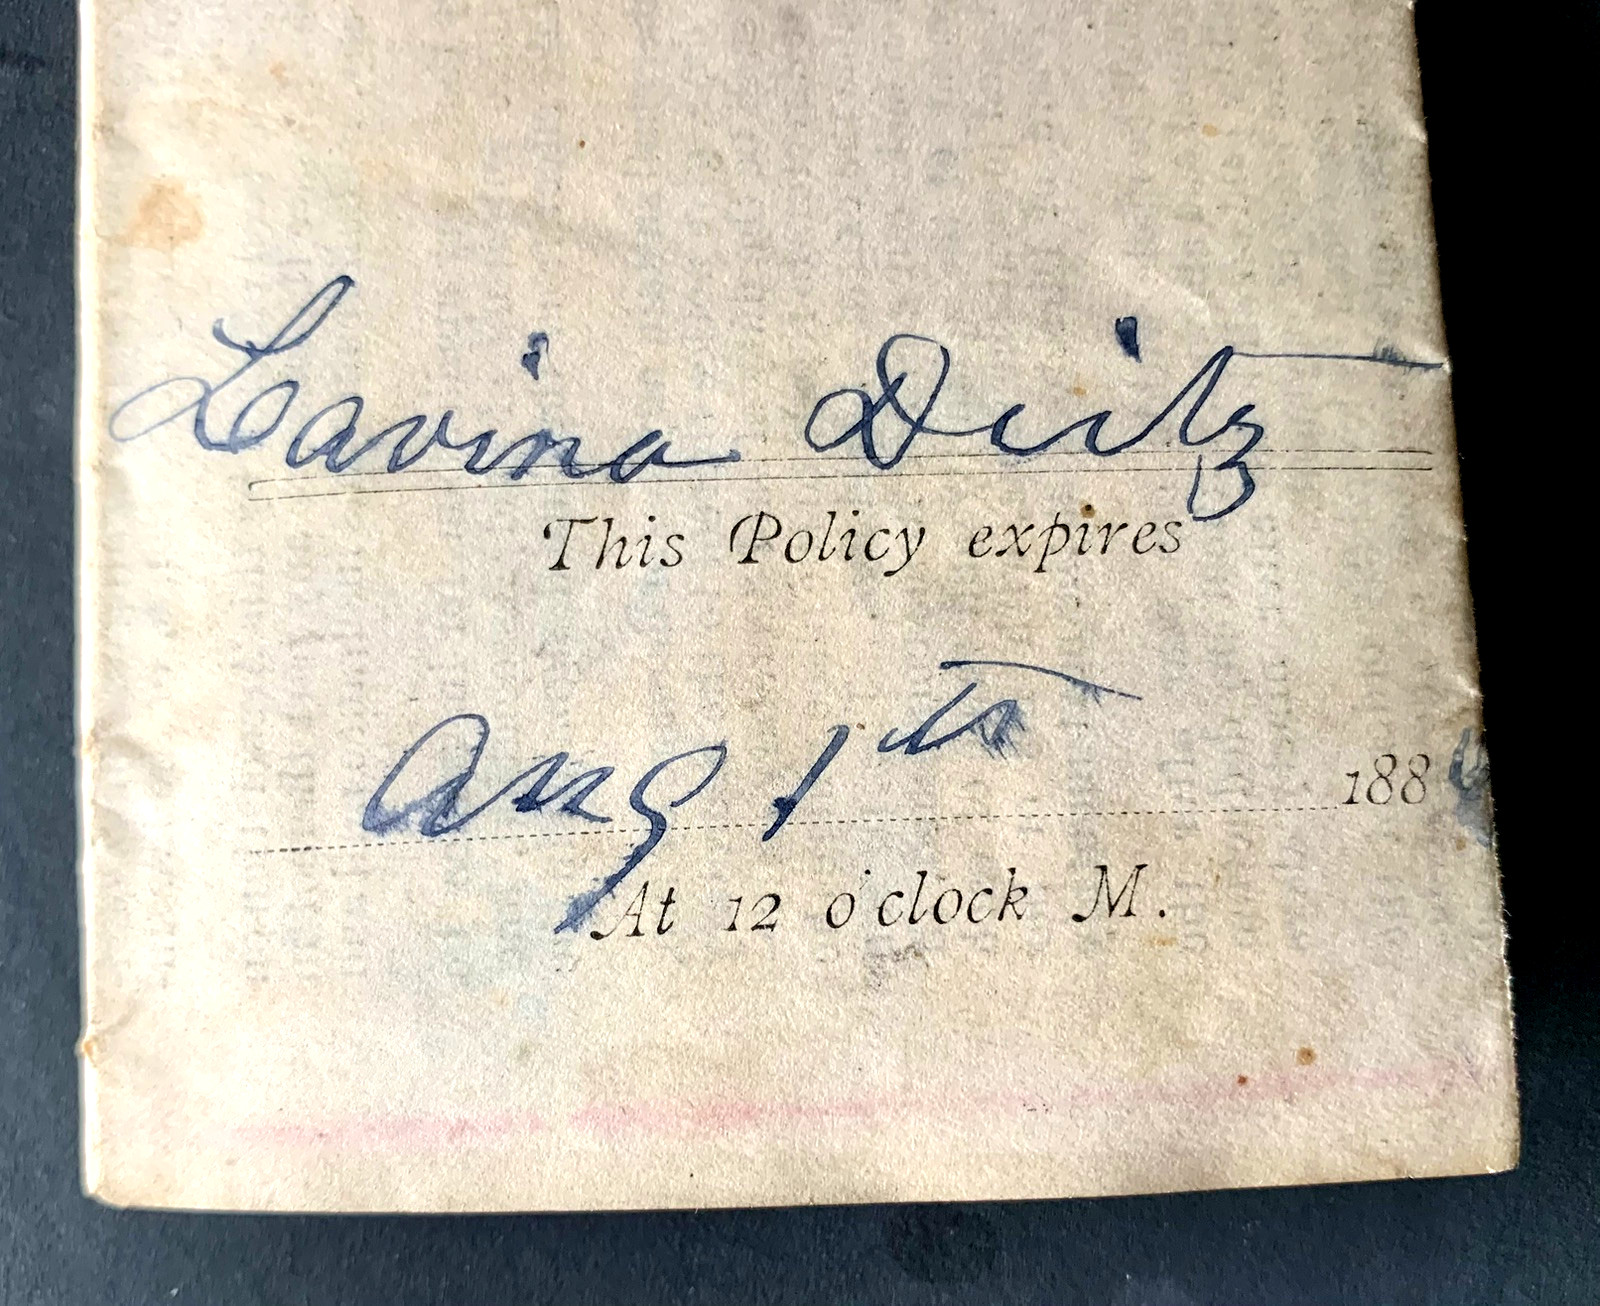 Lavina Deitz
This Policy expires
Aug 1th 188
At 12 o'clock M.